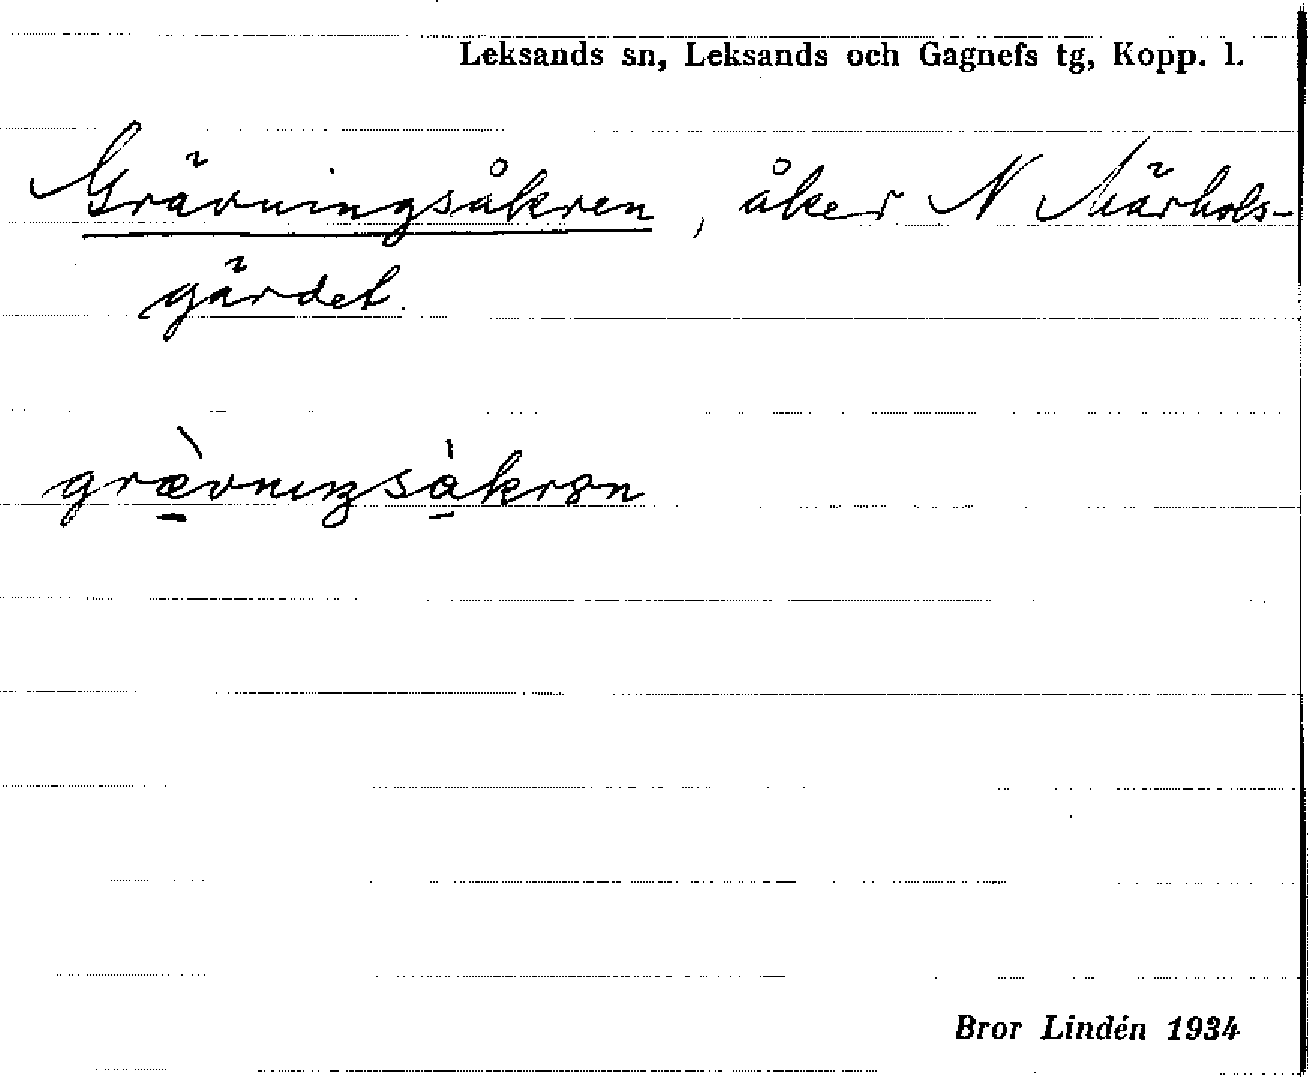 Leksands sn, Leksands och Gagnefs tg, Kopp. l.
Grävningsåkren, åker N Märhols-
gärdet.
græ̀vnıŋsàkrən
Bror Lindén 1934